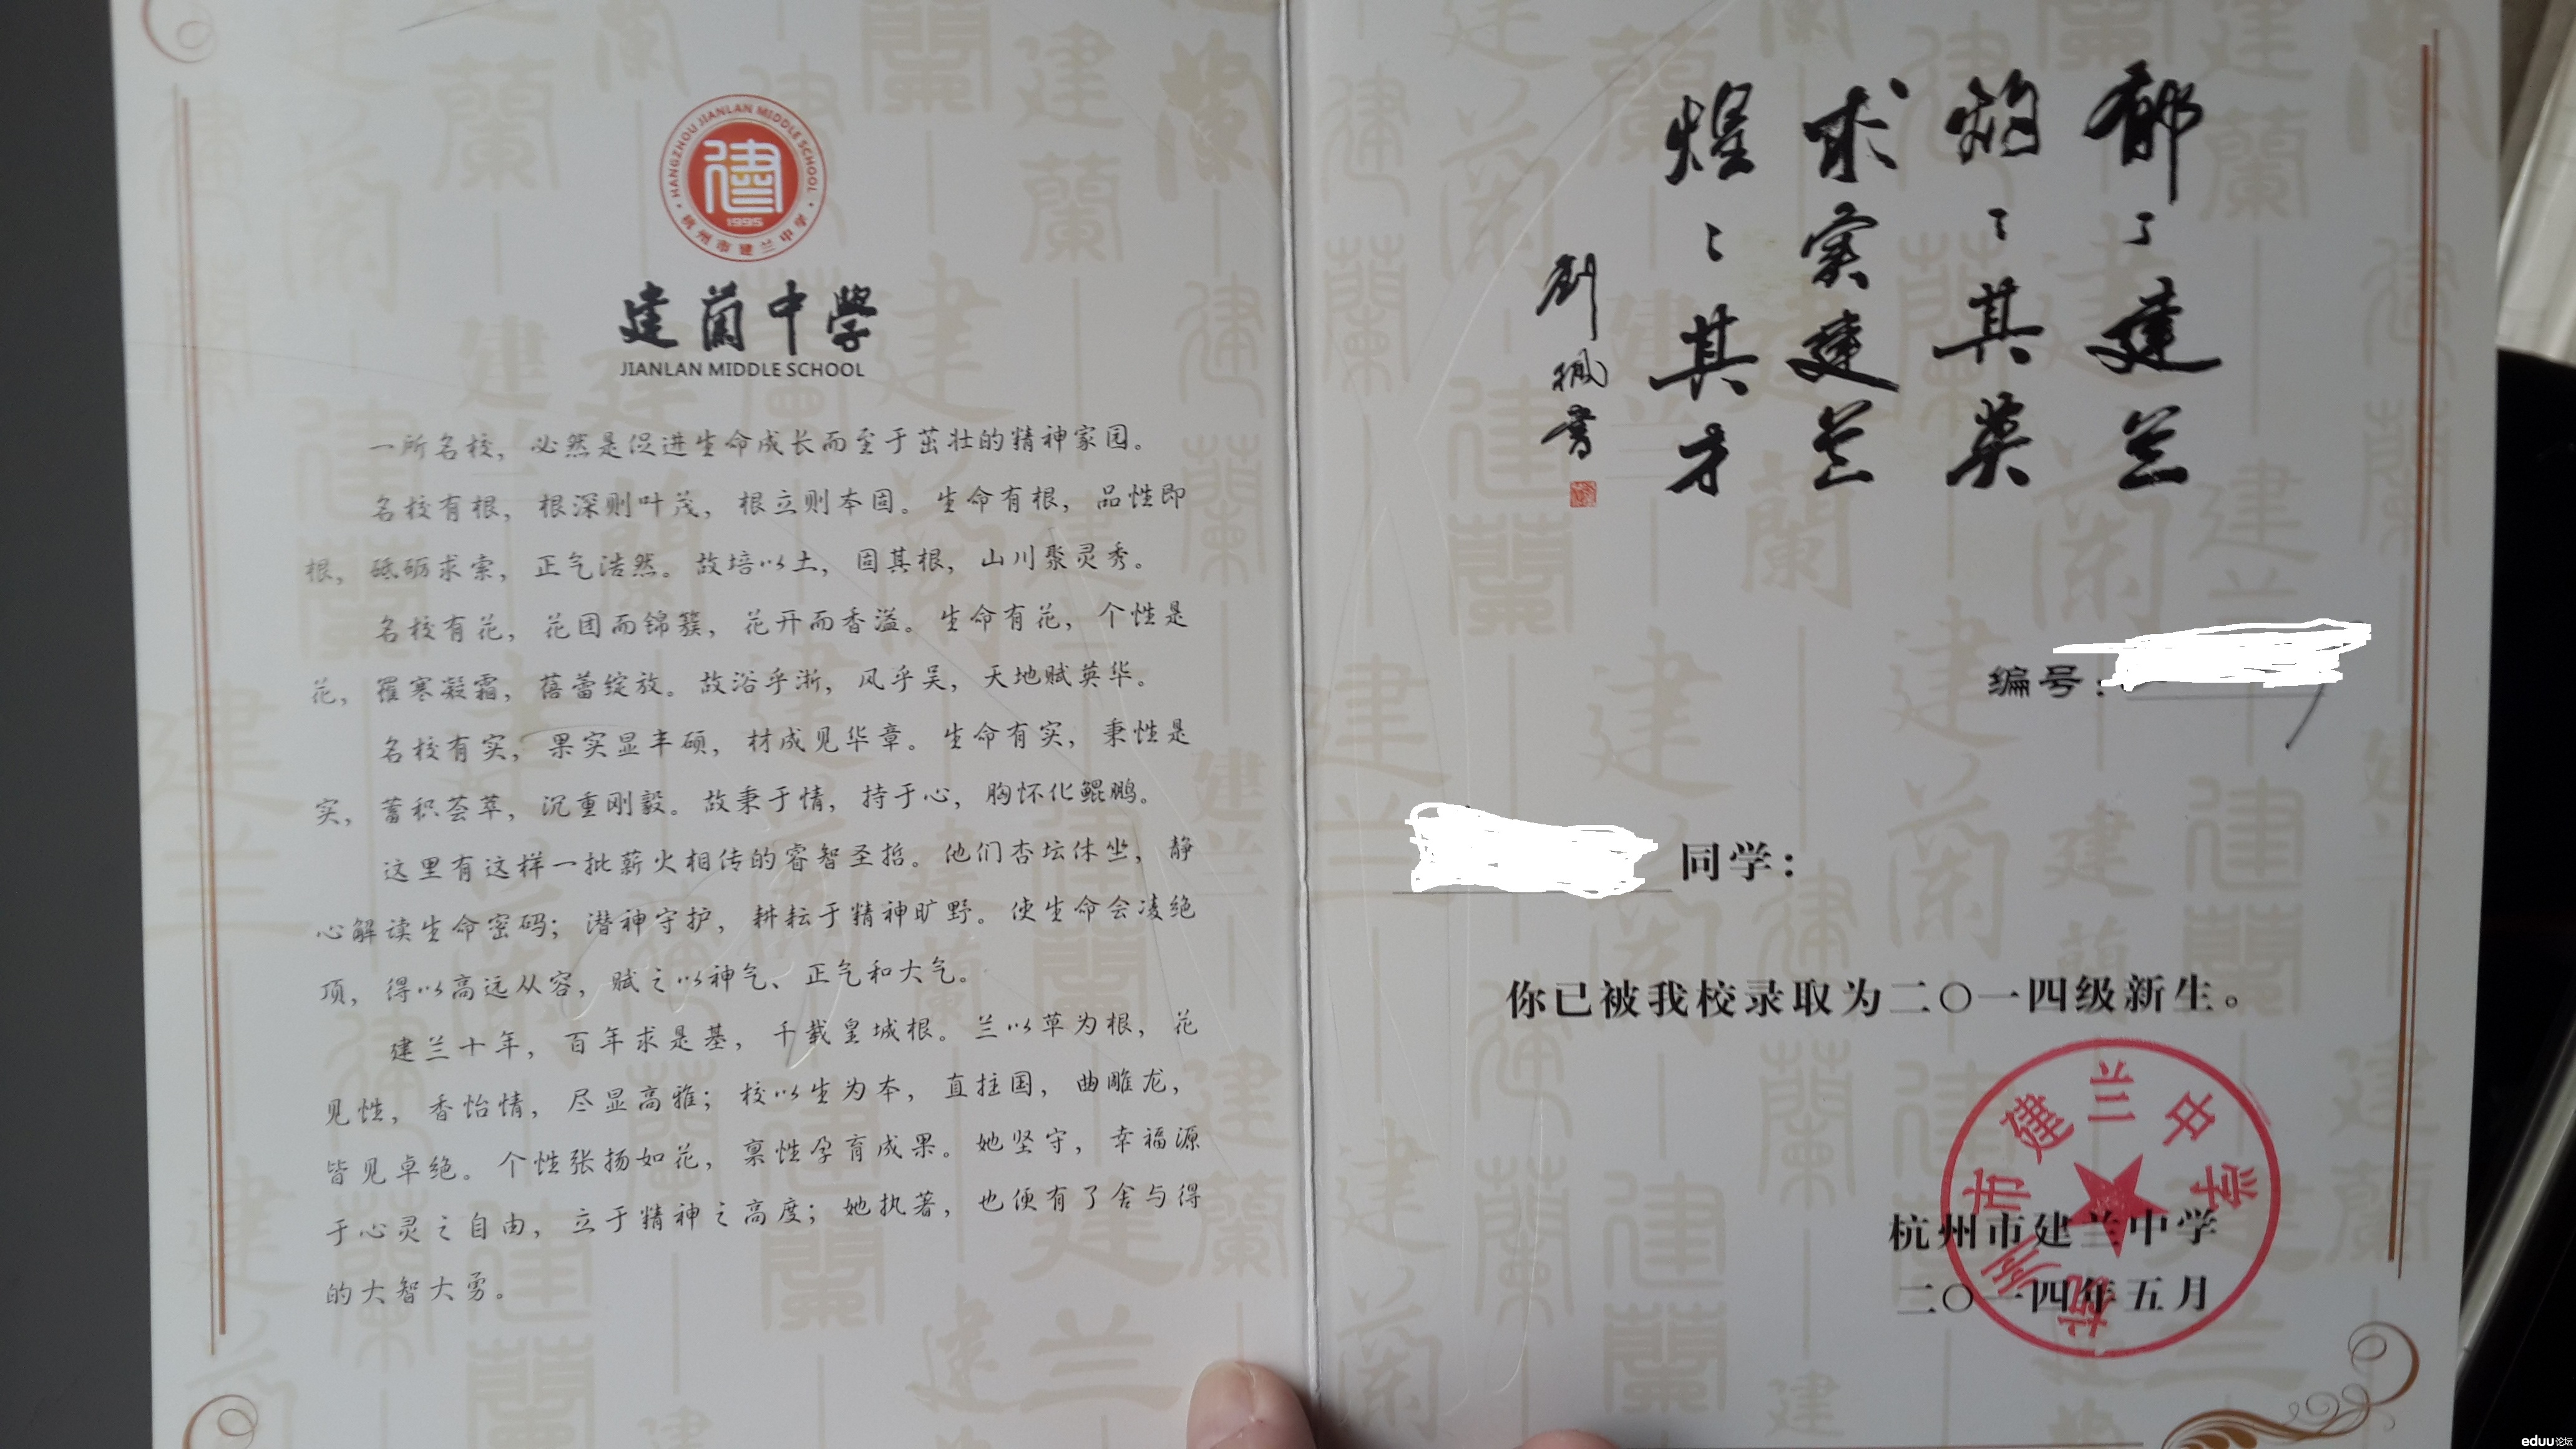 HANGZHOU JIANLAN MIDDLE SCHOOL
建
1995
杭州市建兰中学
建蘭中學
JIANLAN MIDDLE SCHOOL
一所名校，必然是促进生命成长而至于茁壮的精神家园。
名校有根，根深则叶茂，根立则本固。生命有根，品性即
根，砥砺求索，正气浩然。故培以土，固其根，山川聚灵秀。
名校有花，花团而锦簇，花开而香溢。生命有花，个性是
花，罹寒凝霜，蓓蕾绽放。故浴乎浙，风乎吴，天地赋英华。
名校有实，果实显丰硕，材成见华章。生命有实，秉性是
实，蓄积荟萃，沉重刚毅。故秉于情，持于心，胸怀化鲲鹏。
这里有这样一批薪火相传的睿智圣哲。他们杏坛休坐，静
心解读生命密码；潜神守护，耕耘于精神旷野。使生命会凌绝
顶，得以高远从容，赋之以神气、正气和大气。
建兰十年，百年求是基，千载皇城根。兰以草为根，花
见性，香怡情，尽显高雅；校以生为本，直拄国，曲雕龙，
皆见卓绝。个性张扬如花，禀性孕育成果。她坚守，幸福源
于心灵之自由，立于精神之高度；她执著，也便有了舍与得
的大智大勇。
郁々建兰
灼々其英
求实建兰
煜々其才
刘枫书
编号：
同学：
你已被我校录取为二〇一四级新生。
杭州市建兰中学
二〇一四年五月
杭州市建兰中学
eduu论坛